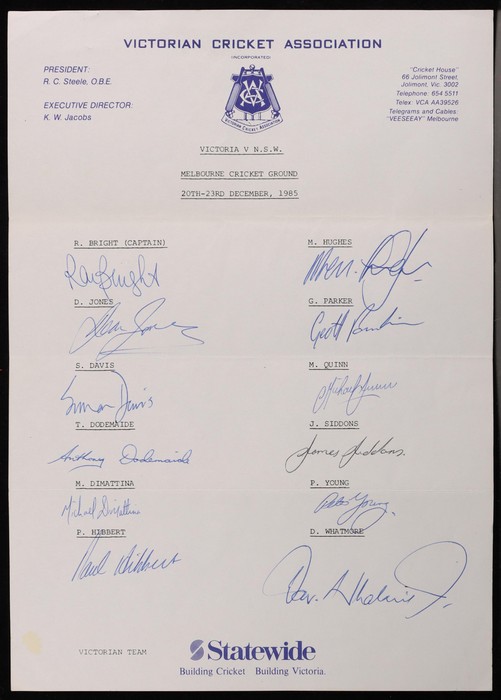 VICTORIAN CRICKET ASSOCIATION
(INCORPORATED)
PRESIDENT:
R. C. Steele, O.B.E.
EXECUTIVE DIRECTOR:
K. W. Jacobs
"Cricket House"
66 Jolimont Street,
Jolimont, Vic. 3002
Telephone: 654 5511
Telex: VCA AA39526
Telegrams and Cables:
"VEESEEAY" Melbourne
VCA
Victorian Cricket Association
VICTORIA V N.S.W.
MELBOURNE CRICKET GROUND
20TH-23RD DECEMBER, 1985
R. BRIGHT (CAPTAIN)
Ray Bright
D. JONES
Dean Jones
S. DAVIS
Simon Davis
T. DODEMAIDE
Anthony Dodemaide
M. DIMATTINA
Michael Dimattina
P. HIBBERT
Paul Hibbert
M. HUGHES
G. PARKER
Geoff Parker
M. QUINN
Michael Quinn
J. SIDDONS
James Siddons.
P. YOUNG
Peter Young
D. WHATMORE
Dav. Whatmore
VICTORIAN TEAM
Statewide
Building Cricket Building Victoria.